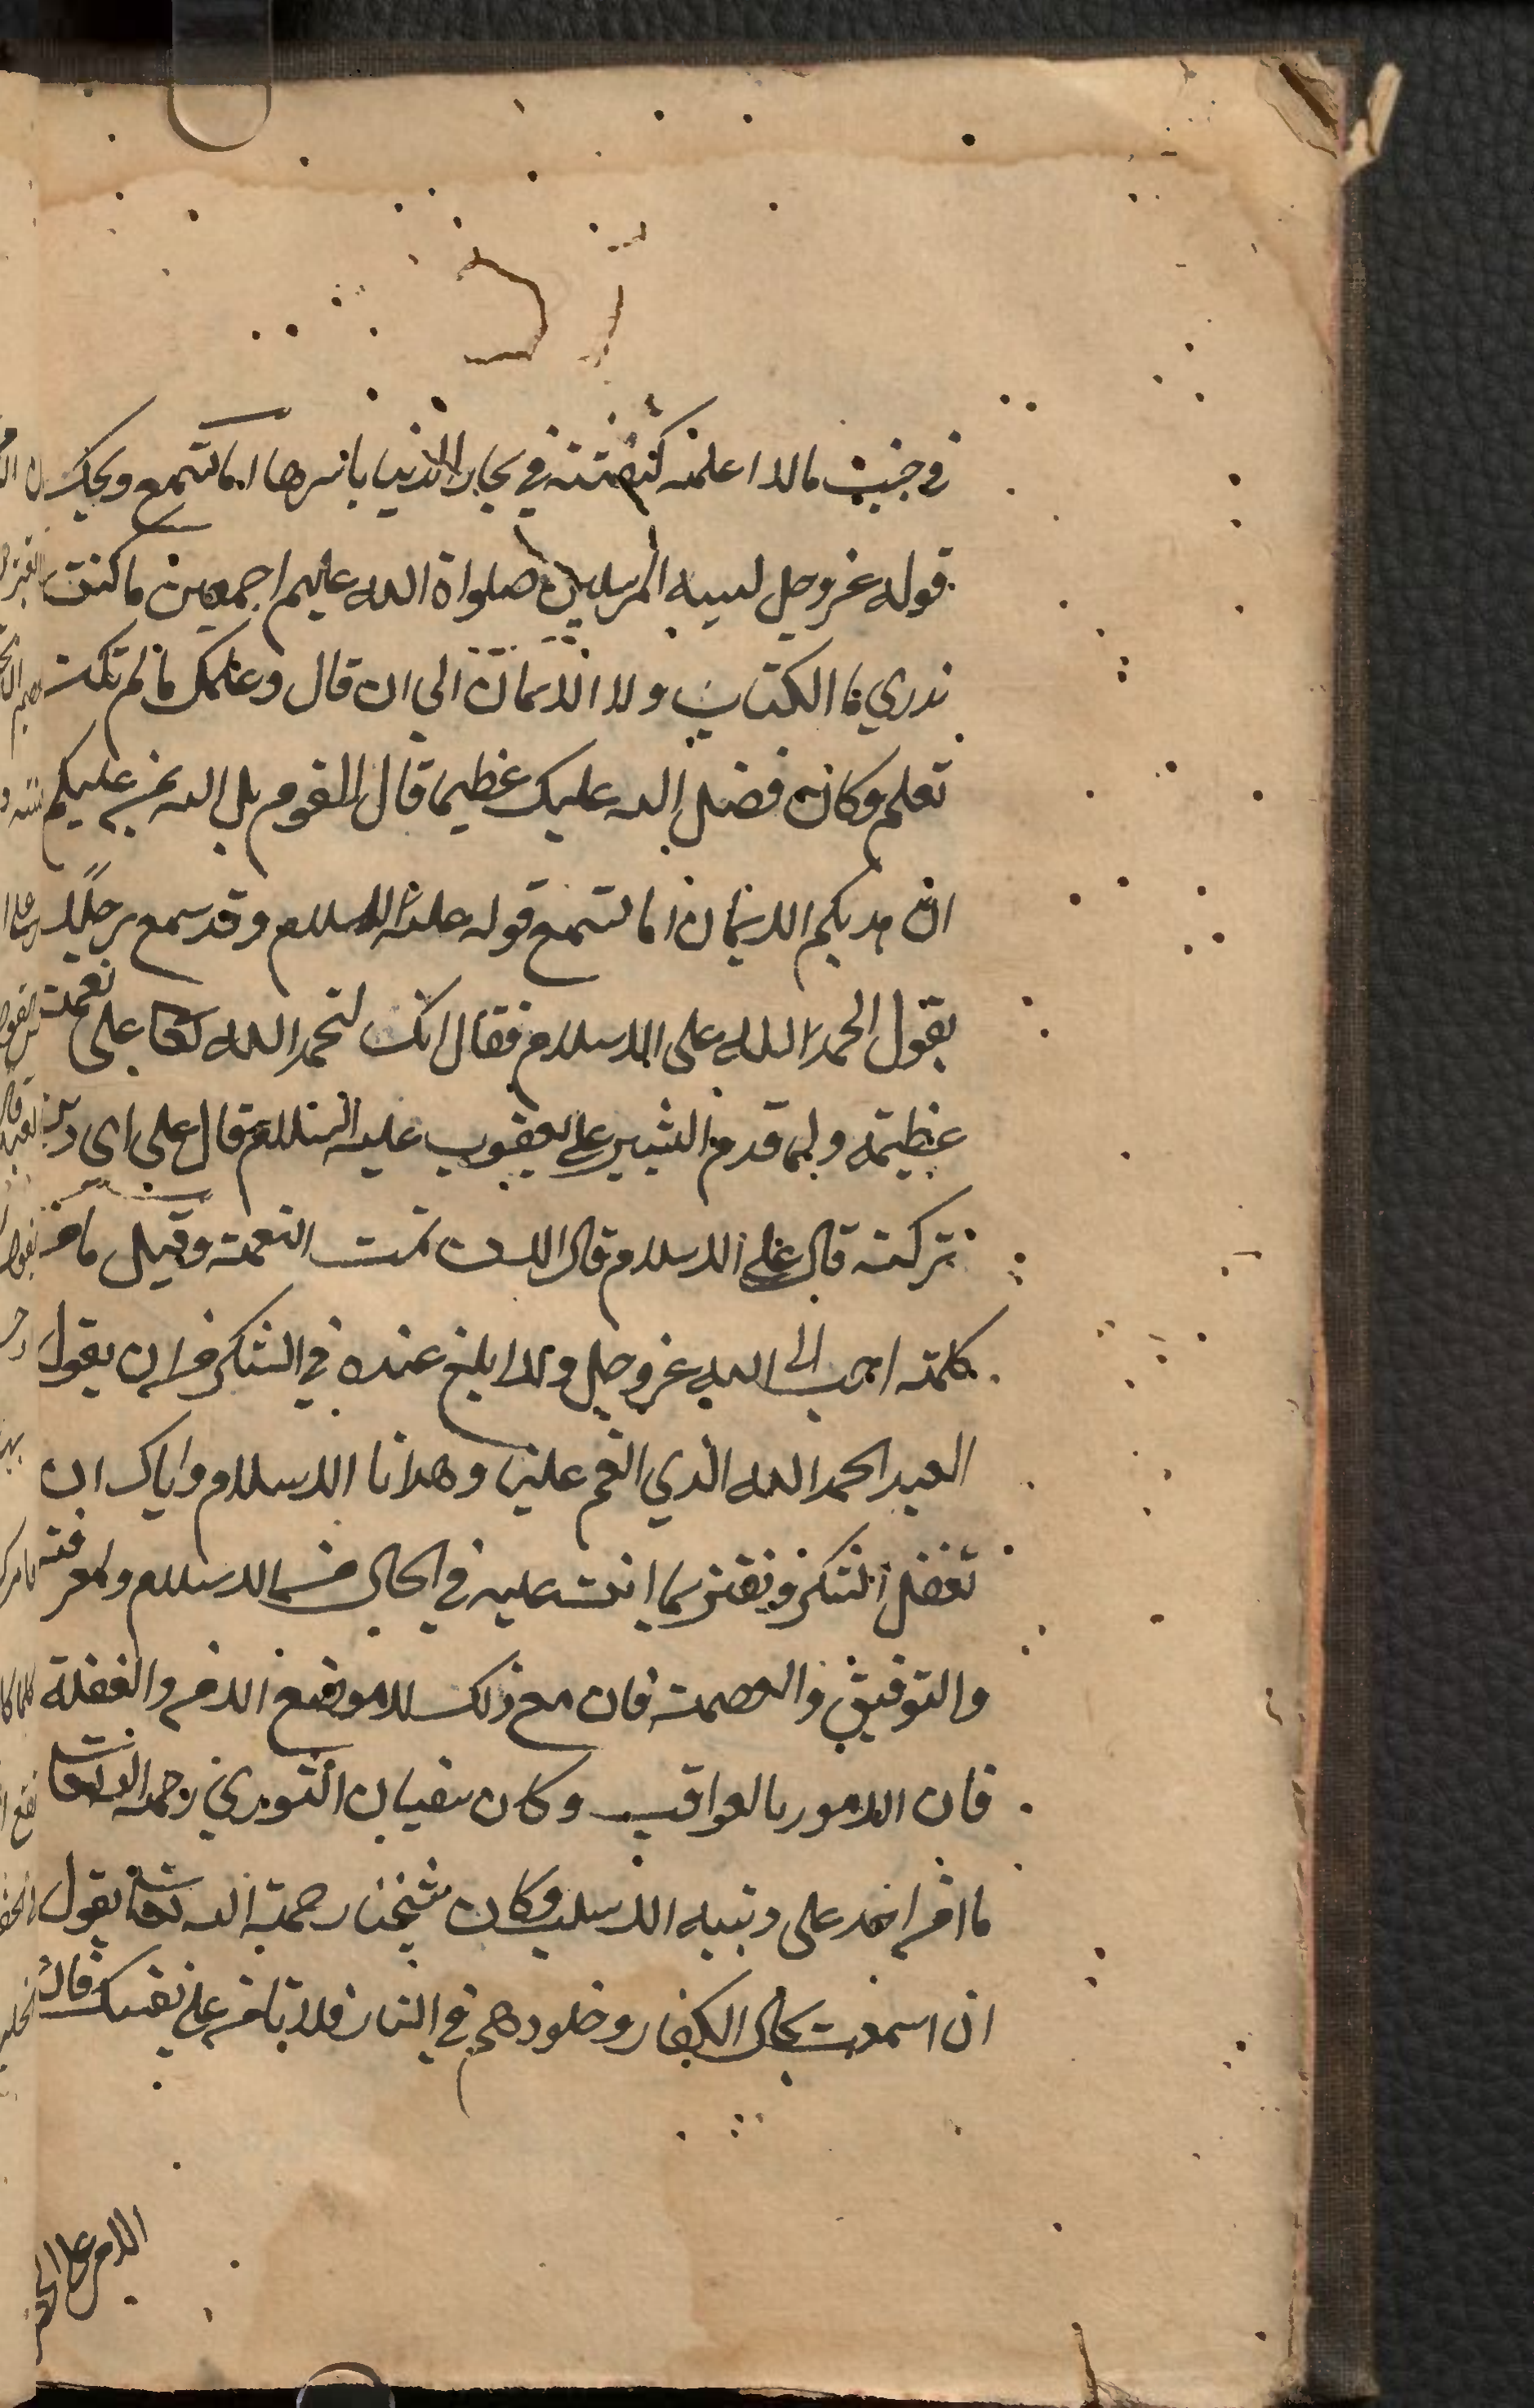 في جنب مالا اعلمه كنفثة في بحار الدنيا باسرها اما تسمع ويحك
قوله عز وجل لسيد المرسلين صلواة الله عليهم اجمعين ما كنت
تدري ما الكتاب ولا الايمان الي ان قال وعلمك ما لم تكن
تعلم وكان فضل الله عليك عظيما قال لقوم بل الله يمن عليكم
ان هديكم للايمان اما تسمع قوله عليه السلام وقد سمع رجلا
يقول الحمد لله على الاسلام فقال انك لتحمد الله تعا على نعمت
عظيمة ولما قدم البشير على يعقوب عليه السلام قال على اى دين
تركته قال على الاسلام قال الان تمت النعمة وقيل ما من
كلمة احب الى الله عز وجل ولا ابلغ عنده في الشكر من ان يقول
العبد الحمد لله الذي انعم علينا وهدانا للاسلام واياك ان
تغفل الشكر وتغتر بما انت عليه في الحال من الاسلام والمعرفته
والتوفيق والعصمة فان مع ذلك لا موضع الامن والغفلة
فان الامور بالعواقب وكان سفيان الثوري رحمه الله تعا
ما امن احد على دينه الا سلب وكان شيخنا رحمة الله تعا يقول
ان اسمعت بحال الكفار وخلودهم في النار فلا تامن على نفسك فان
الامر على الخطر